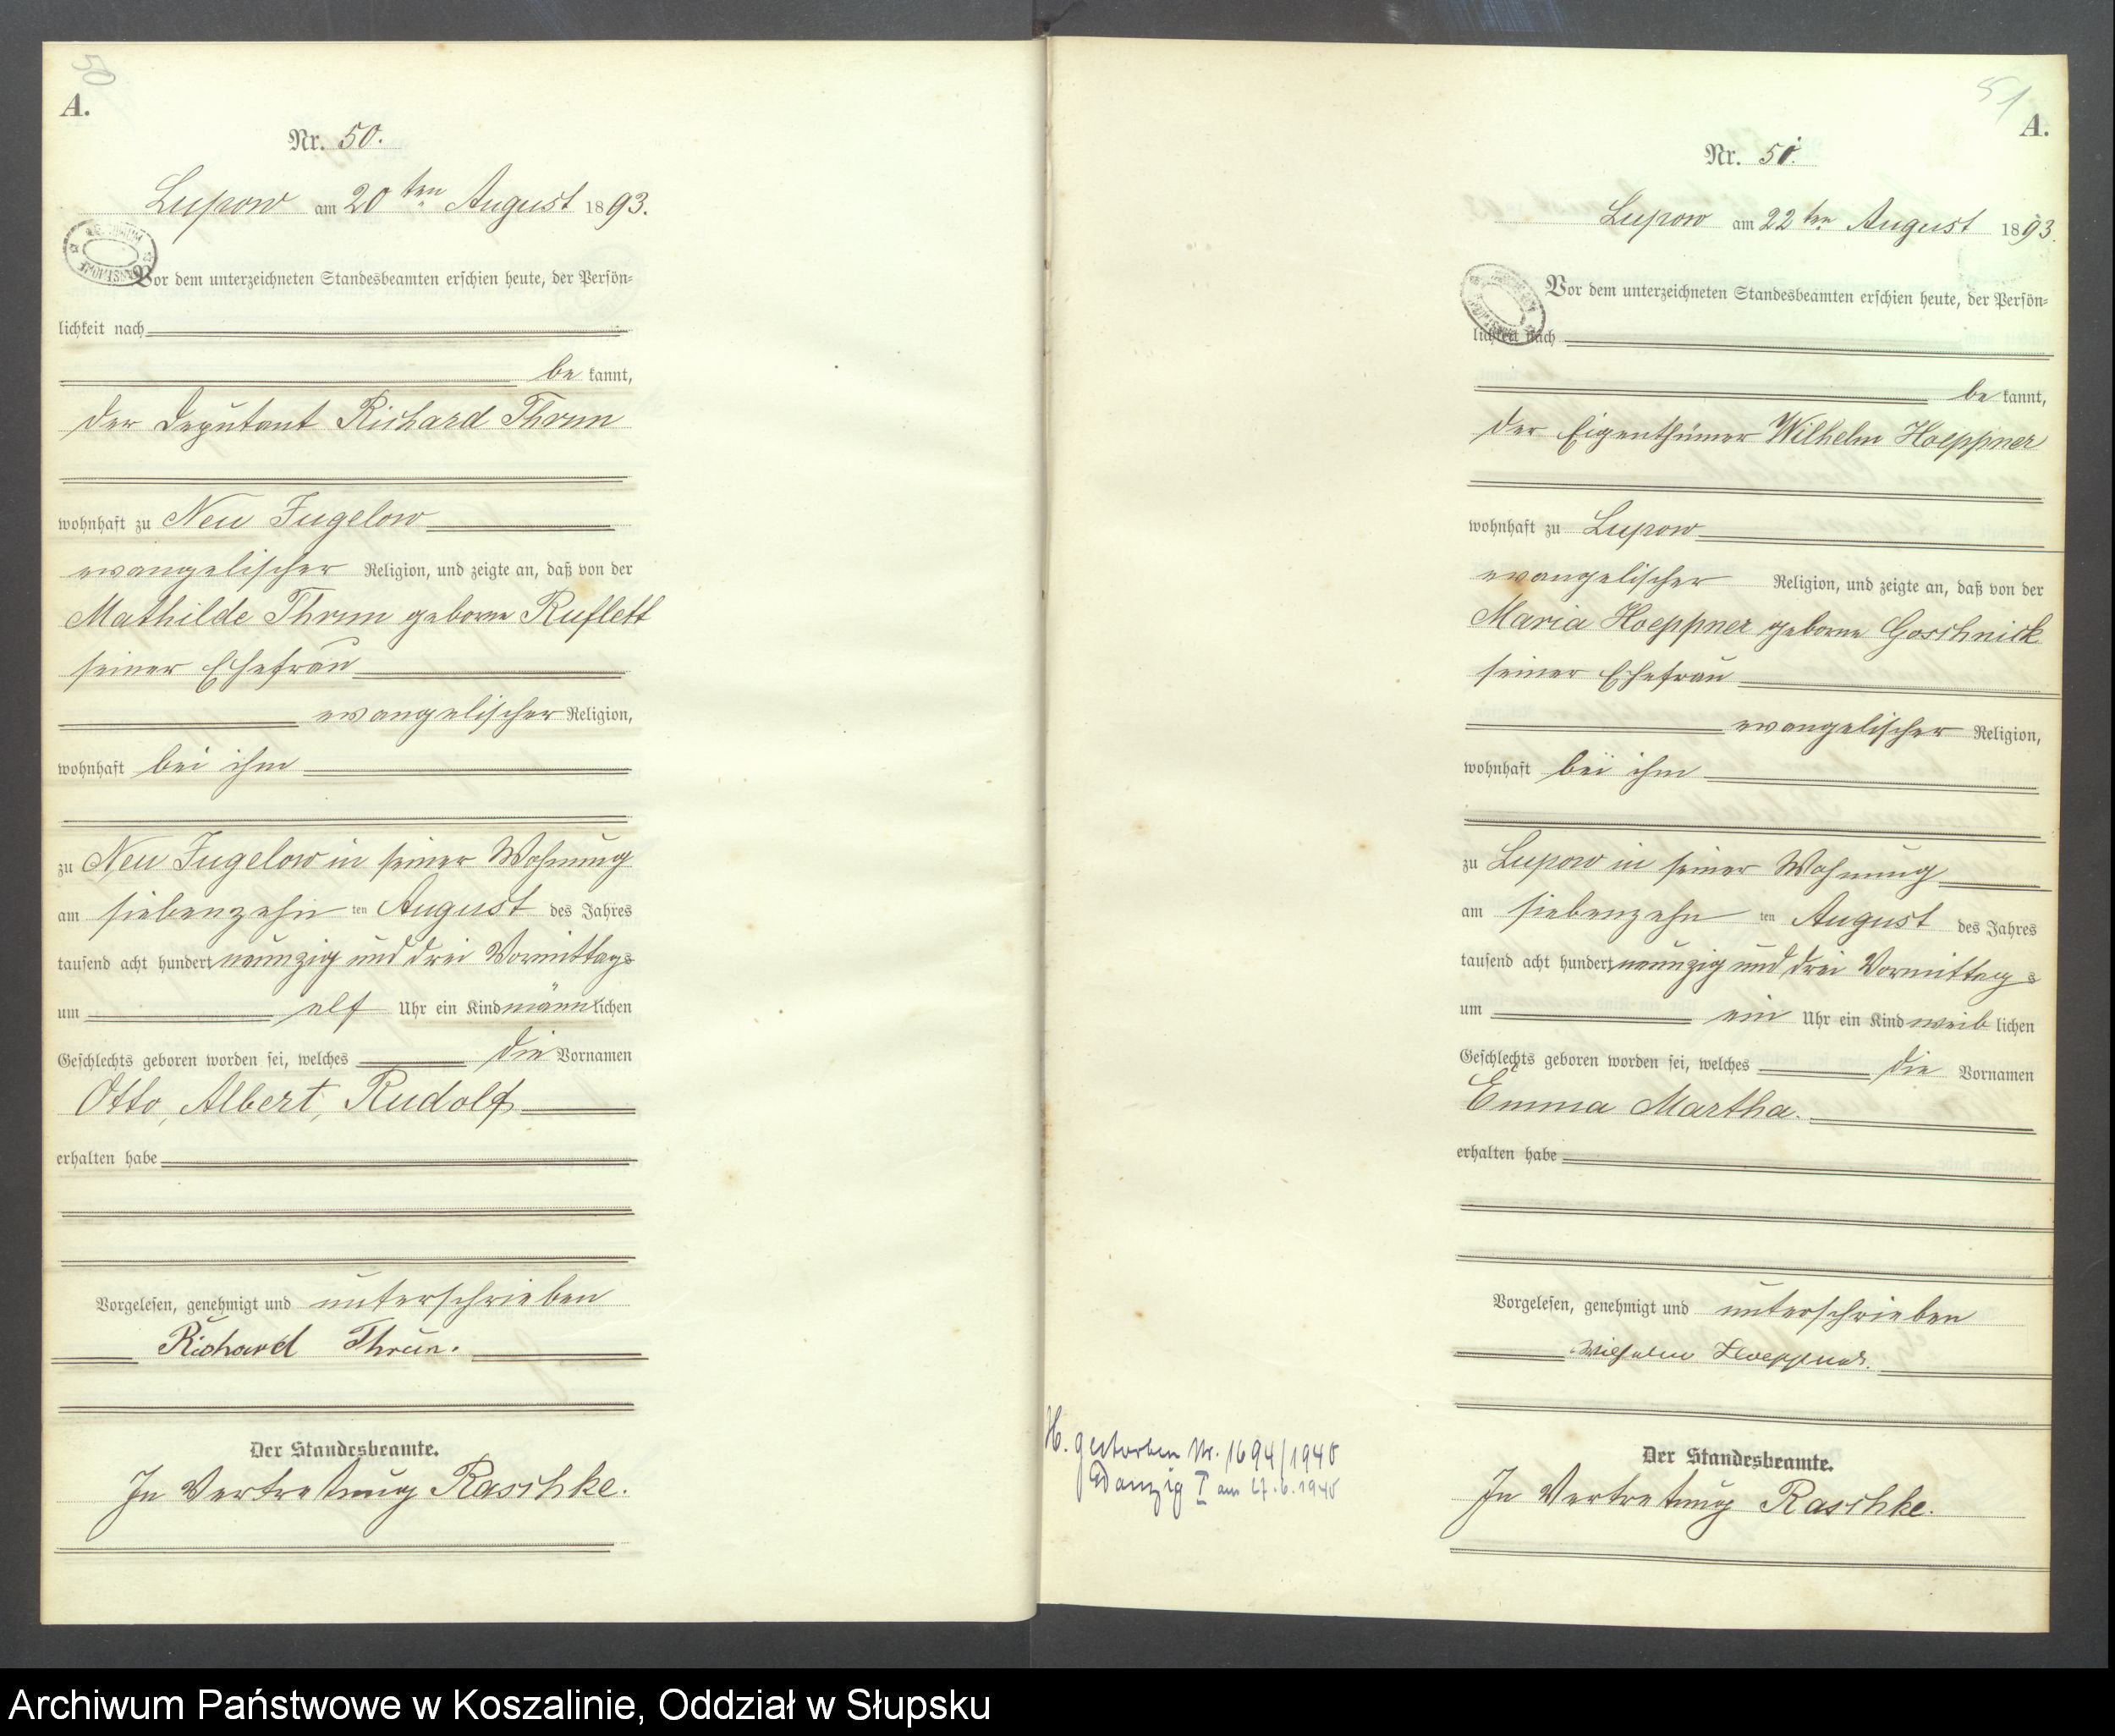 50
A.
Nr. 50.
Lupow am 20ten August 1893.
Vor dem unterzeichneten Standesbeamten erschien heute, der Persön=
lichkeit nach
be kannt,
der Deputant Richard Thrun
wohnhaft zu Neu Jugelow
evangelischer Religion, und zeigte an, daß von der
Mathilde Thrun geborne Ruflett
seiner Ehefrau
evangelischer Religion,
wohnhaft bei ihm
zu Neu Jugelow in seiner Wohnung
am siebenzehn ten August des Jahres
tausend acht hundert neunzig und drei Vormittags
um elf Uhr ein Kind männlichen
Geschlechts geboren worden sei, welches die Vornamen
Otto, Albert, Rudolf
erhalten habe
Vorgelesen, genehmigt und unterschrieben
Richard Thrun.
Der Standesbeamte.
In Vertretung Raschke.
51
A.
Nr. 51.
Lupow am 22ten August 1893.
Vor dem unterzeichneten Standesbeamten erschien heute, der Persön=
lichkeit nach
be kannt,
der Eigenthümer Wilhelm Hoeppner
wohnhaft zu Lupow
evangelischer Religion, und zeigte an, daß von der
Maria Hoeppner geborne Goschnick
seiner Ehefrau
evangelischer Religion,
wohnhaft bei ihm
zu Lupow in seiner Wohnung
am siebenzehn ten August des Jahres
tausend acht hundert neunzig und drei Vormittags
um ein Uhr ein Kind weiblichen
Geschlechts geboren worden sei, welches die Vornamen
Emma Martha.
erhalten habe
Vorgelesen, genehmigt und unterschrieben
Wilhelm Hoeppner.
H. gestorben Nr. 1694/1940
Danzig I am 27.6.1940
Der Standesbeamte.
In Vertretung Raschke.
Archiwum Państwowe w Koszalinie, Oddział w Słupsku